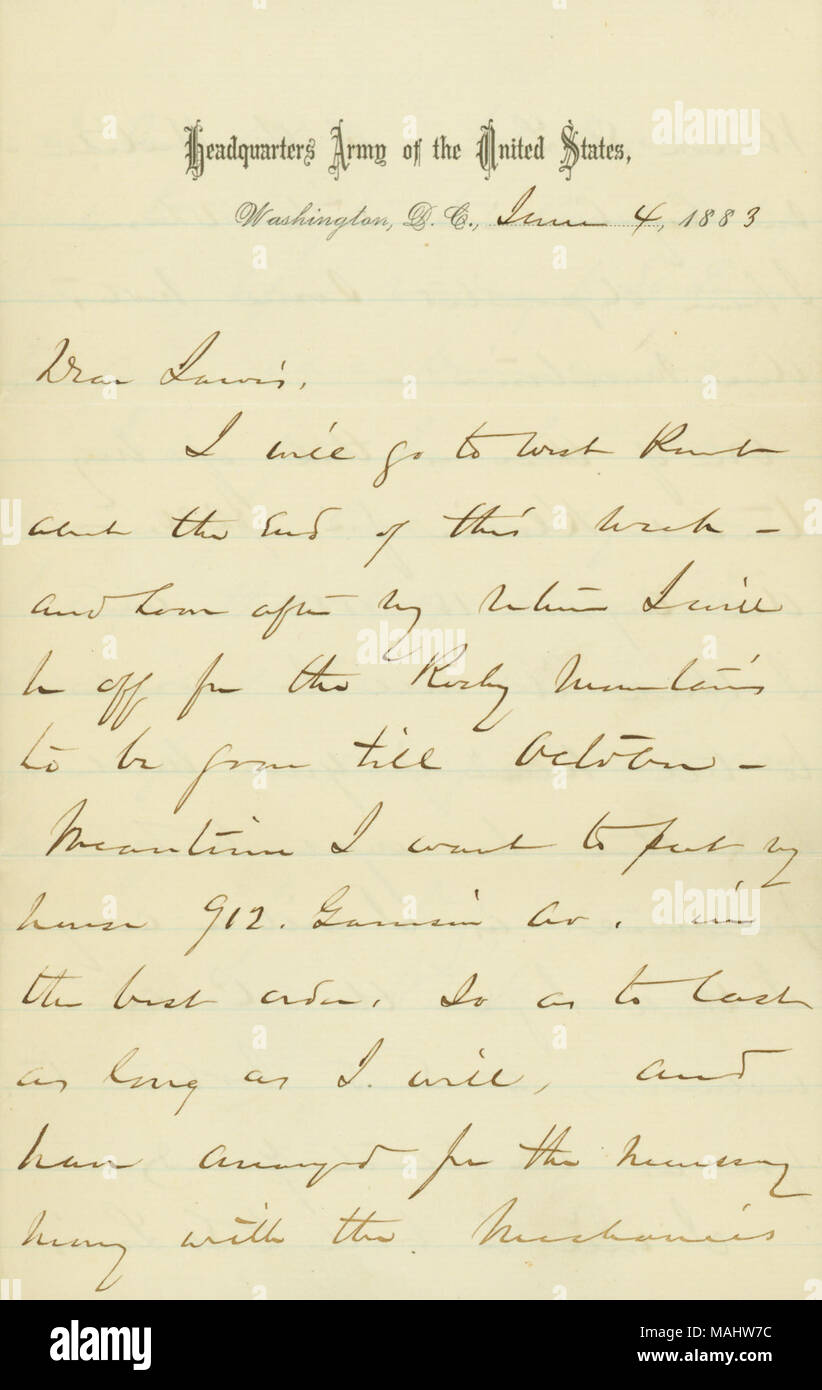 Headquarters Army of the United States,
Washington, D. C., June 4, 1883
Dear Lewis,
I will go to West Point
about the End of this week –
and soon after my return I will
be off for the Rocky Mountains
to be gone till October –
Meantime I want to put my
house 912. Garrison Av. in
the best order. So as to last
as long as I. will, and
have arranged for the necessary
money with the Mechanics
alamy
Image ID: MAHW7C
www.alamy.com